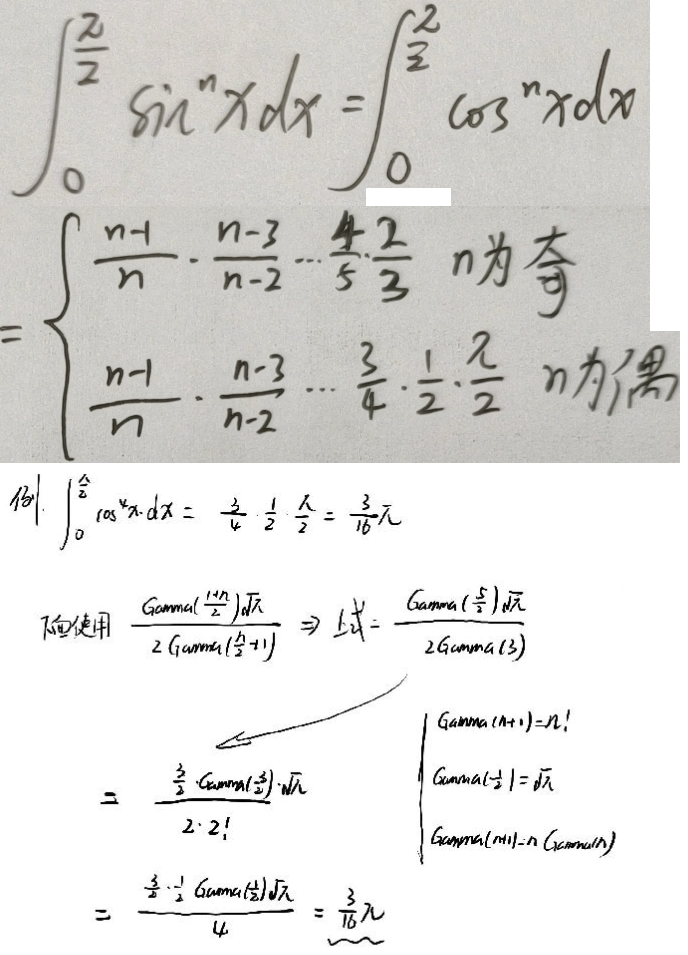 ∫₀^(π/2) sinⁿx dx = ∫₀^(π/2) cosⁿx dx
= { (n-1)/n · (n-3)/(n-2) ··· 4/5 · 2/3 n为奇
(n-1)/n · (n-3)/(n-2) ··· 3/4 · 1/2 · π/2 n为偶
例. ∫₀^(π/2) cos⁴x·dx = 3/4 · 1/2 · π/2 = 3/16 π
下面使用 Gamma((1+n)/2)√π / 2Gamma(n/2+1) ⇒ 上式 = Gamma(5/2)√π / 2Gamma(3)
Gamma(n+1)=n!
Gamma(1/2)=√π
Gamma(n+1)=n Gamma(n)
= 3/2 · Gamma(3/2)·√π / 2·2!
= 3/2 · 1/2 Gamma(1/2)√π / 4 = 3/16 π